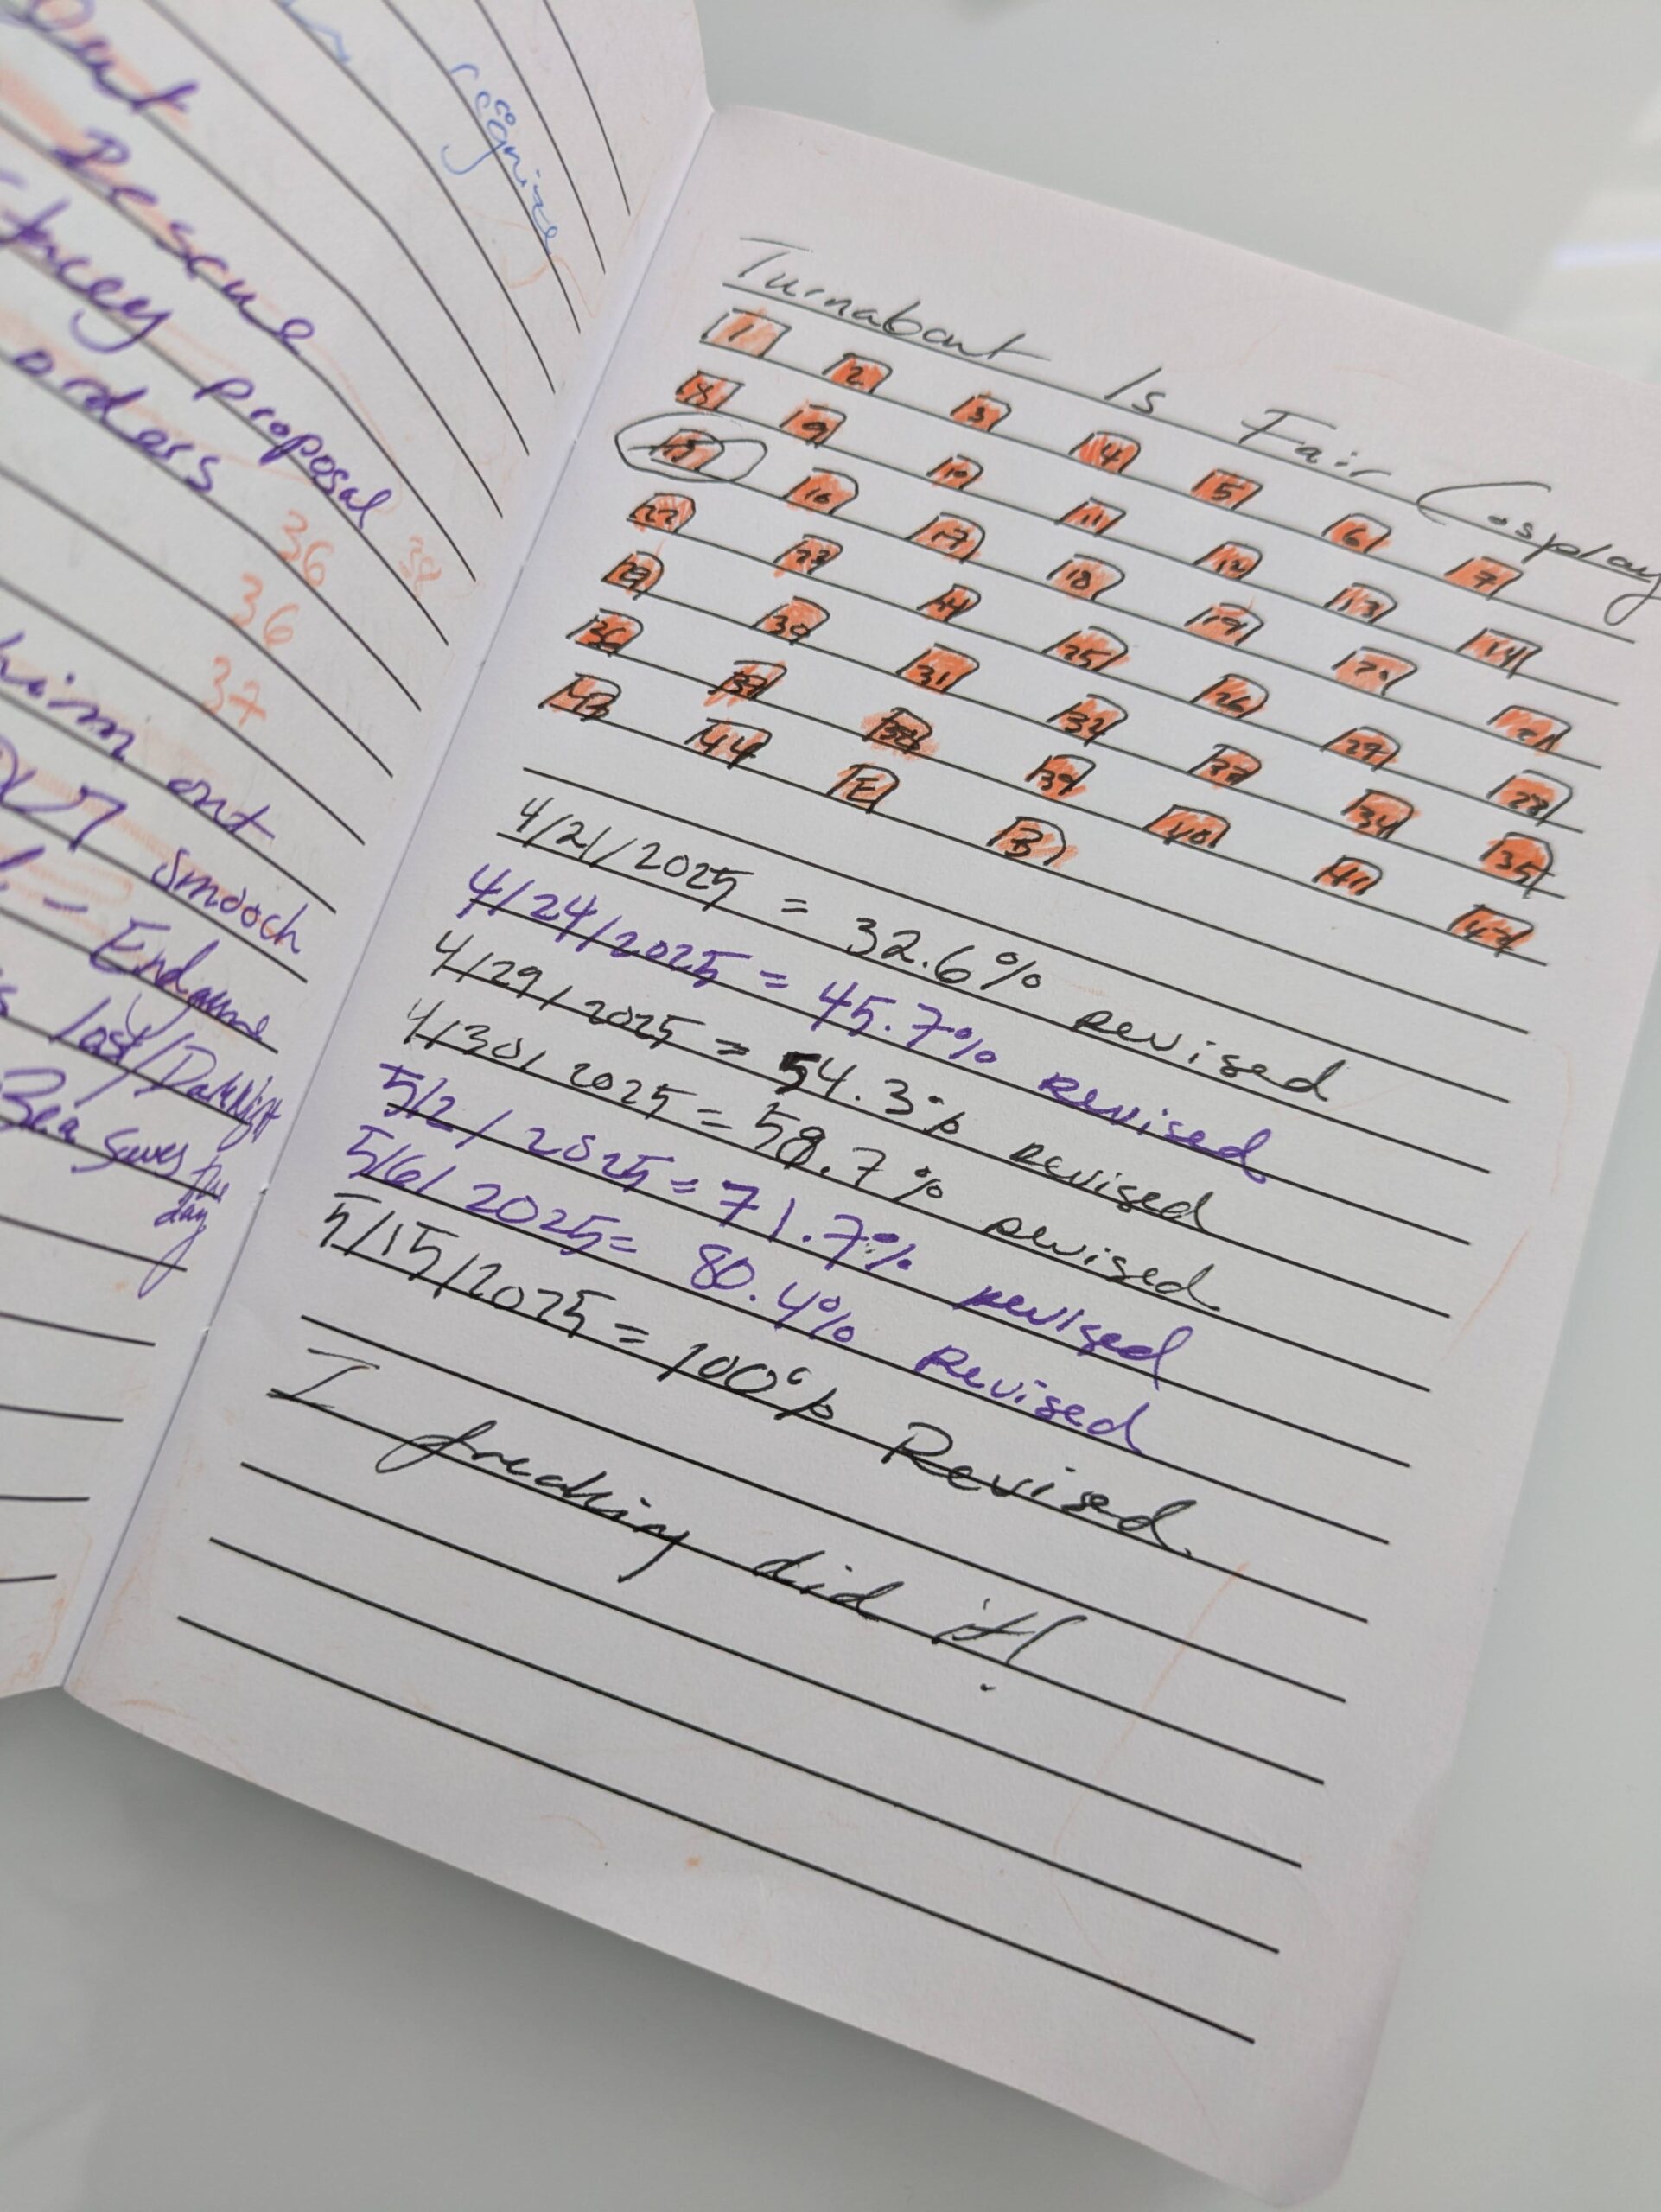 recognize
out
Rescue
proposal
orders
36
36
37
him out
smooch
- Endgame
last/Darklight
Bea saves the
day
Turnabout Is Fair Cosplay
1 2 3 4 5 6 7
8 9 10 11 12 13 14
15 16 17 18 19 20 21
22 23 24 25 26 27 28
29 30 31 32 33 34 35
36 37 38 39 40 41 42
43 44 E B
4/21/2025 = 32.6% revised
4/24/2025 = 45.7% revised
4/29/2025 = 54.3% revised
4/30/2025 = 58.7% revised
5/2/2025 = 71.7% revised
5/6/2025 = 80.4% Revised
5/15/2025 = 100% Revised.
I freaking did it!